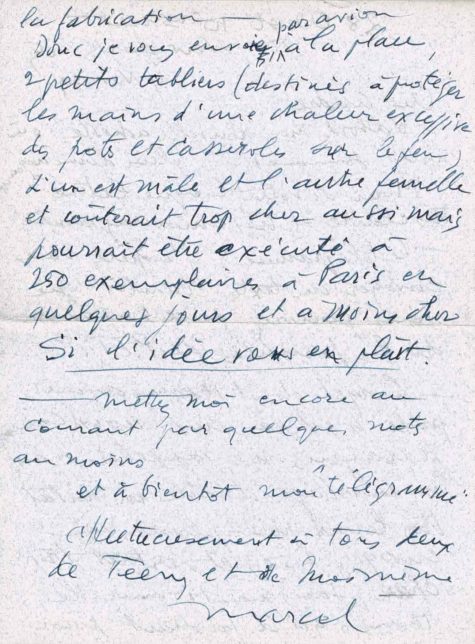 la fabrication —
par avion
Donc je vous envoie, à la place,
2 petits tabliers (destinés à protéger
les mains d'une chaleur excessive
des pots et casseroles sur le feu)
L'un est mâle et l'autre femelle
et coûterait trop cher aussi mais
pourrait être exécuté à
250 exemplaires à Paris en
quelques jours et à moins cher
Si l'idée vous en plaît.
— mettez moi encore au
courant par quelques mots
au moins
et à bientot mon télégramme
Affectueusement à tous deux
de Teeny et de Moi même
Marcel